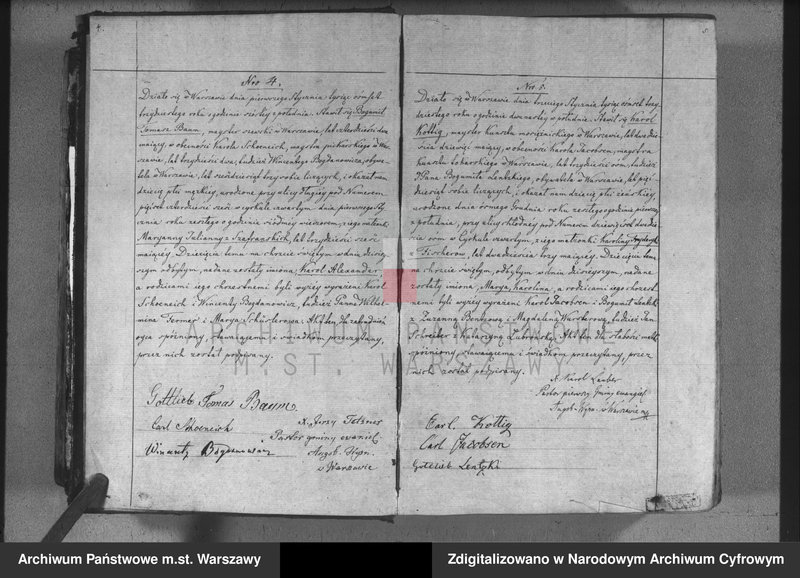 4.
Nro 4.
Działo się w Warszawie dnia pierwszego Stycznia tysiąc ośmset
trzydziestego roku o godzinie szóstey z południa. Stawił się Bogumił
Tomasz Baum, mayster szewcki w Warszawie, lat czterdzieści dwa
maiący, w obecności Karola Schoeneich, maystra piekarskiego w War-
szawie, lat trzydzieści dwa, tudzież Wincentego Bogdanowicza, obywa-
tela w Warszawie, lat sześćdziesiąt trzy roku liczących, i okazał nam
dziecię płci męzkiey, urodzone przy ulicy długiey pod Numerem
pięćset czterdzieści sześć w cyrkule czwartym dnia pierwszego Sty-
cznia roku zeszłego o godzinie siódmey wieczorem, z iego małżonki
Maryanny Julianny z Szafranskich, lat trzydzieści sześć
maiącey. Dziecięciu temu na chrzcie świętym w dniu dzisiey-
szym odbytym, nadane zostały imiona, Karol Alexander,
a rodzicami iego chrzestnemi byli wyżey wyrażeni Karol
Schoeneich i Wincenty Bogdanowicz, tudzież Panna Willhel-
mina Termer i Marya Schirlerowa. Akt ten, dla zatrudnień
oyca spóźniony, stawaiącemu i świadkom przeczytany,
przez nich został podpisany.
Gottlieb Tomas Baum.
Carl Schoeneich
Wincenty Bogdanowicz
X. Jerzy Tetzner
Pastor gminy ewaniel.
Augsb. Wyzn.
w Warszawie
5
Nro 5.
Działo się w Warszawie dnia trzeciego Stycznia tysiąc ośmset trzy-
dziestego roku o godzinie dwunastey w południe. Stawił się Karol
Kottig, mayster kunsztu mosiężnickiego w Warszawie, lat dwadzie-
ścia dziewięć maiący, w obecności Karola Jacobsen, maystra
kunsztu tokarskiego w Warszawie, lat trzydzieści ośm, tudzież
Pana Bogumiła Lentzkiego, obywatela w Warszawie, lat pięć-
dziesiąt roku liczących, i okazał nam dziecię płci żeńskiey,
urodzone dnia ósmego Grudnia roku zeszłego o godzinie pierwszey
z południa, przy ulicy chłodney pod Numerem dziewięćset dwadzie-
ścia ośm w Cyrkule siódmym, z iego małżonki Karoliny Fryderyki
z Fischerów, lat dwadzieścia trzy maiącey. Dziecięciu temu
na chrzcie świętym, odbytym w dniu dzisieyszym, nadane
zostały imiona, Marya Karolina, a rodzicami iego chrzest-
nemi byli wyżey wyrażeni Karol Jacobsen i Bogumił Lentzki
z Zuzanną Benkową i Magdaleną Warsterową, tudzież Jan
Schreiber z Katarzyną Zubrowską. Akt ten dla słabości matki
spóźniony, stawaiącemu i świadkom przeczytany, przez
nich został podpisany.
X. Karol Lauber
Pastor pierwszy Gminy ewangiel.
Augsb. Wyzn. w Warszawie
Carl. Kottig
Carl Jacobsen
Gottlieb Lentzki
ARCHIWUM PAŃSTWOWE
M.ST. WARSZAWY
Archiwum Państwowe m.st. Warszawy
Zdigitalizowano w Narodowym Archiwum Cyfrowym